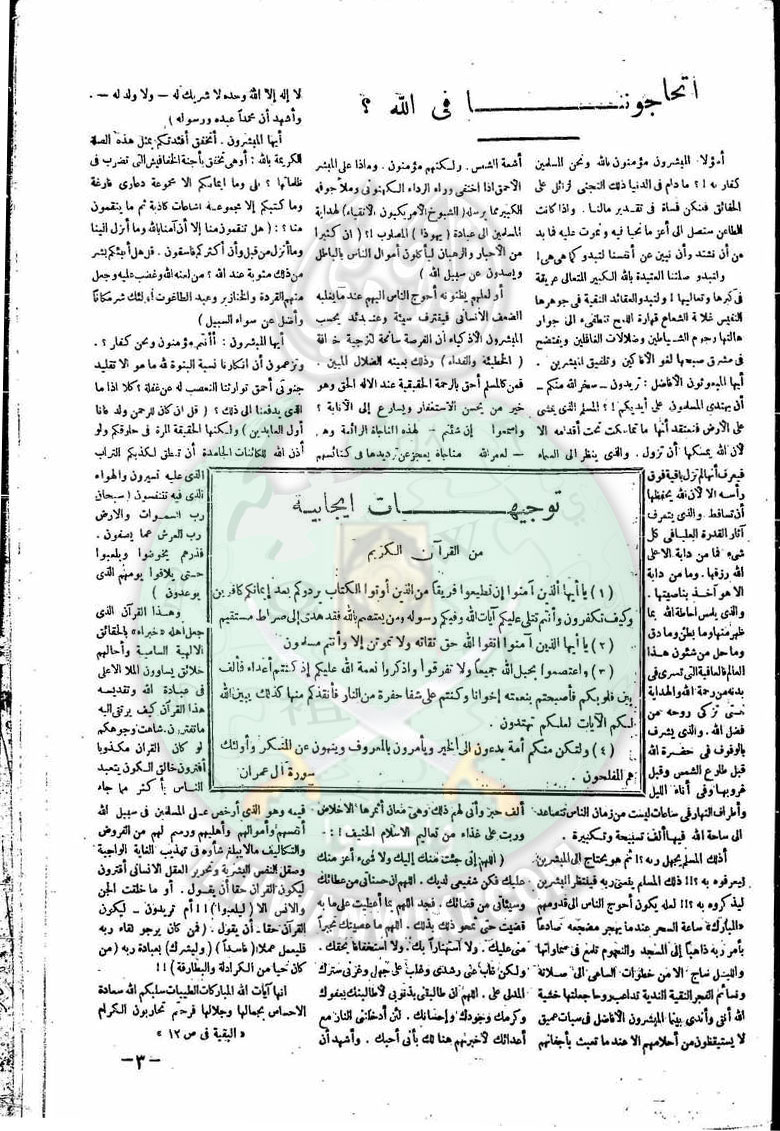 أتحاجوننا فى الله ؟
أهؤلاء المبشرون مؤمنون بالله ونحن المسلمين
كفار به !؟ مادام فى الدنيا ذلك التجنى الزائل على
الحقائق فلنكن قساة فى تقدير مالنا . واذا كانت
المطاعن ستصل الى أعز ما نحيا فيه ونموت عليه فلا بد
من أن نشتد وأن نبين عن أنفسنا لتبدو كما هى !
ولتبدو صلتنا العتيدة بالله الكبير المتعالى عريقة
فى كبرها وتعاليها ! ولتبدو العقائد النقية فى جوهرها
النفيس غلالة الشعاع قهارة اللمح تنطفىء الى جوار
هالتها رجوم الشياطين وضلالات الغافلين ويفتضح
فى مشرق صبحها لغو الأفاكين وتلفيق المبشرين .
أيها المبعوثون الأفاضل : تريدون - سخر الله منكم -
أن يهتدى المسلمون على أيديكم !؟ المسلم الذى يمشى
على الأرض فنعتقد أنها ما تماسكت تحت أقدامه الا
لأن الله يمسكها أن تزول . والذى ينظر الى السماء
فيعرف أنها لم تزل باقية فوق
رأسه الا لأن الله يحفظها
أن تساقط . والذى يتعرف
آثار القدرة العليا فى كل
شىء فما من دابة الا على
الله رزقها . وما من دابة
الا هو آخذ بناصيتها .
والذى يلمس احاطة الله بما
ظهر منها وما بطن وما دق
وما جل من شئون هذا
العالم فالعافية التى تسرى فى
بدنه من رحمة الله والهداية
حتى تزكى روحه من
فضل الله . والذى يشرف
بالوقوف فى حضرة الله
قبل طلوع الشمس وقبل
غروبها وفى أناء الليل
وأطراف النهار فى ساعات ليست من زمان الناس تتصاعد
الى ساحة الله فيها ألف تسبيحة وتكبيرة .
أذلك المسلم يجهل ربه ؟! ثم هو يحتاج الى المبشرين
ليعرفوه به ؟!! ذلك المسلم يغنى ربه فيفتقر المبشرين
ليذكروه به ؟!! لعله يكون أحوج الناس الى قدومهم
«المبارك» ساعة السحر عندما يهجر مضجعه صادعاً
بأمر ربه ذاهباً إلى المسجد والنجوم تلمع فى سماواتها
والليل ساج الا من خطرات الساعى الى صلاته
ونسائم الفجر النقية الندية تداعب روحا جعلتها خشية
الله أنقى وأندى بينما المبشرون الأفاضل فى سبات عميق
لا يستيقظون من أحلامهم الا عندما تعبث بأجفانهم
أشعة الشمس . ولكنهم مؤمنون . وماذا على المبشر
الأحمق اذا اختفى وراء الرداء الكهنوتى وملأ جوفه
الكبير مما يرسله ( الشيوخ الأمريكيون الأتقياء ) لهداية
المسلمين الى عبادة ( يهوذا ) المصلوب !؟ ( ان كثيرا
من الأحبار والرهبان ليأكلون أموال الناس بالباطل
ويصدون عن سبيل الله )
أو لعلهم يظنونه أحوج الناس اليهم عند ما يغلبه
الضعف الانسانى فيقترف سيئة وعندئذ يحسب
المبشرون الأذكياء أن الفرصة سانحة لتزجية خرافة
( الخطيئة والفداء ) وذلك بعينه الضلال المبين .
فمن كالمسلم أحق بالرحمة الحقيقية عند الاله الحق وهو
خير من يحسن الاستغفار ويسارع إلى الانابة ؟
واسمعوا إن شئتم - لهذه المناجاة الرائعة وهى
- لعمر الله مناجاة يعجز عن ترديدها فى كنائسهم
توجيهات ايجابية
من القرآن الكريم
( ١ ) يا أيها الذين آمنوا إن تطيعوا فريقاً من الذين أوتوا الكتاب يردوكم بعد إيمانكم كافرين
وكيف تكفرون وأنتم تتلى عليكم آيات الله وفيكم رسوله ومن يعتصم بالله فقد هدى إلى صراط مستقيم
( ٢ ) يا أيها الذين آمنوا اتقوا الله حق تقاته ولا تموتن إلا وأنتم مسلمون
( ٣ ) واعتصموا بحبل الله جميعاً ولا تفرقوا واذكروا نعمة الله عليكم إذ كنتم أعداء فألف
بين قلوبكم فأصبحتم بنعمته إخوانا وكنتم على شفا حفرة من النار فأنقذكم منها كذلك يبين الله
لكم الآيات لعلكم تهتدون .
( ٤ ) ولتكن منكم أمة يدعون الى الخير ويأمرون بالمعروف وينهون عن المنكر وأولئك
هم المفلحون . سورة آل عمران
ألف حبر وأنى لهم ذلك وهى معان أثمرها الاخلاص
وربت على غذاء من تعاليم الاسلام الحنيف !:-
( اللهم إنى جئت منك إليك ولا شىء أعز منك
عليك تكن شفيعى لديك . اللهم ان حسناتى من عطائك
وسيئاتى من قضائك . فجد اللهم بما أعطيت على ما به
قضيت حتى تمحو ذلك بذلك . اللهم ما عصيتك تجبراً
منى عليك . ولا استهتاراً بك . ولا استخفافا بحقك .
ولكن غاب عنى رشدى وغلبنى على جهلى وغرنى سترك
المدلى على . اللهم ان طالبتنى بذنوبى لأطالبنك بعفوك
وكرمك وجودك وإحسانك . لئن أدخلتنى النار مع
أعدائك لأخبرنهم هنالك بأنى أحبك . وأشهد أن
لا إله إلا الله وحده لا شريك له - ولا ولد له - .
وأشهد أن محمداً عبده ورسوله )
أيها المبشرون . أتخفق أفئدتكم بمثل هذه الصلة
الكريمة بالله : أو هى تخفق بأجنحة الخفافيش التى تضرب فى
ظلماتها ؟ بلى وما ايمانكم الا مجموعة دعاوى فارغة
وما كتبكم إلا مجموعة اشاعات كاذبة ثم ما ينقمون
منا ؟ : ( هل تنقمون منا إلا أن آمنا بالله وما أنزل الينا
وما أنزل من قبل وأن أكثركم فاسقون . قل هل أنبئكم بشر
من ذلك مثوبة عند الله ؟ من لعنه الله وغضب عليه وجعل
منهم القردة والخنازير وعبد الطاغوت أولئك شر مكاناً
وأضل عن سواء السبيل )
أيها المبشرون : أأنتم مؤمنون ونحن كفار ؟ .
وتزعمون أن انكارنا نسبة البنوة لله ما هو الا تقليد
جنونى أحمق توارثنا التعصب له عن غفلة ؟ كلا اذا ما
الذى يدفعنا الى ذلك ؟ ( قل ان كان للرحمن ولد فأنا
أول العابدين ) ولكنها الحقيقة المرة فى حلوقكم ولو
أذن الله للكائنات الجامدة أن تنطق لكذبكم التراب
الذى عليه تسيرون والهواء
الذى فيه تتنفسون ( سبحان
رب السموات والارض
رب العرش عما يصفون .
فذرهم يخوضوا ويلعبوا
حتى يلاقوا يومهم الذى
يوعدون )
وهذا القرآن الذى
جعل أهله «خبراء» بالحقائق
الالهية السامية وأحالهم
خلائق يساوون الملأ الاعلى
فى عبادة الله وتقديسه
هذا القرآن كيف يرتقى اليه
ما تفترون. شاهت وجوهكم
لو كان القرآن مكذوبا
أفترون خالق الكون يتعبد
الناس بأكثر مما جاء
فيه وهو الذى أرخص على المسلمين فى سبيل الله
أنفسهم وأموالهم وأهليهم ورسم لهم من الفروض
والتكاليف ما لا يبلغ شأوه فى تهذيب الغاية الواجبة
وصقل النفس البشرية وتحرير العقل الانسانى أفترون
ليكون القرآن حقا أن يقول . أو ما خلقت الجن
والانس الا ( ليلعبوا ) !! أم تريدون - ليكون
القرآن حقا - أن يقول . ( فمن كان يرجو لقاء ربه
فليعمل عملا ( فاسداً ) ( وليشرك ) بعبادة ربه ( من
كان حيا من الكرادلة والبطارقة ) !!!
انها آيات الله المباركات الطيبات سلبكم الله سعادة
الاحساس بجمالها وجلالها فرحتم تحاربون الكرام
« البقية فى ص ١٢ »
-٣-